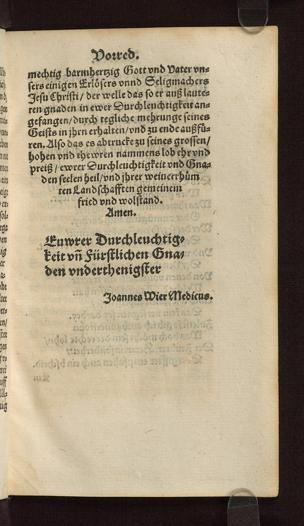 Vorred.
mechtig barmhertzig Gott vnd Vater vn-
sers einigen Erlösers vnnd Seligmachers
Jesu Christi/ der welle das so er auß laute-
ren gnaden in ewer Durchleuchtigkeit an-
gefangen/ durch tegliche mehrunge seines
Geists in jhrē erhalten/ vnd zu ende außfü-
ren. Also das es abtrucke zu seines grossen/
hohen vnd thewren nammens lob ehr vnd
preiß/ ewrer Durchleuchtigkeit vnd Gna-
den seelen heil/ vnd jhrer
ten Landschafften gemeinem
fried vnd wolstand.
Amen.
Euwrer Durchleuchtig-
keit vñ Fürstlichen Gna-
den vnderthenigster
Joannes Wier Medicus.